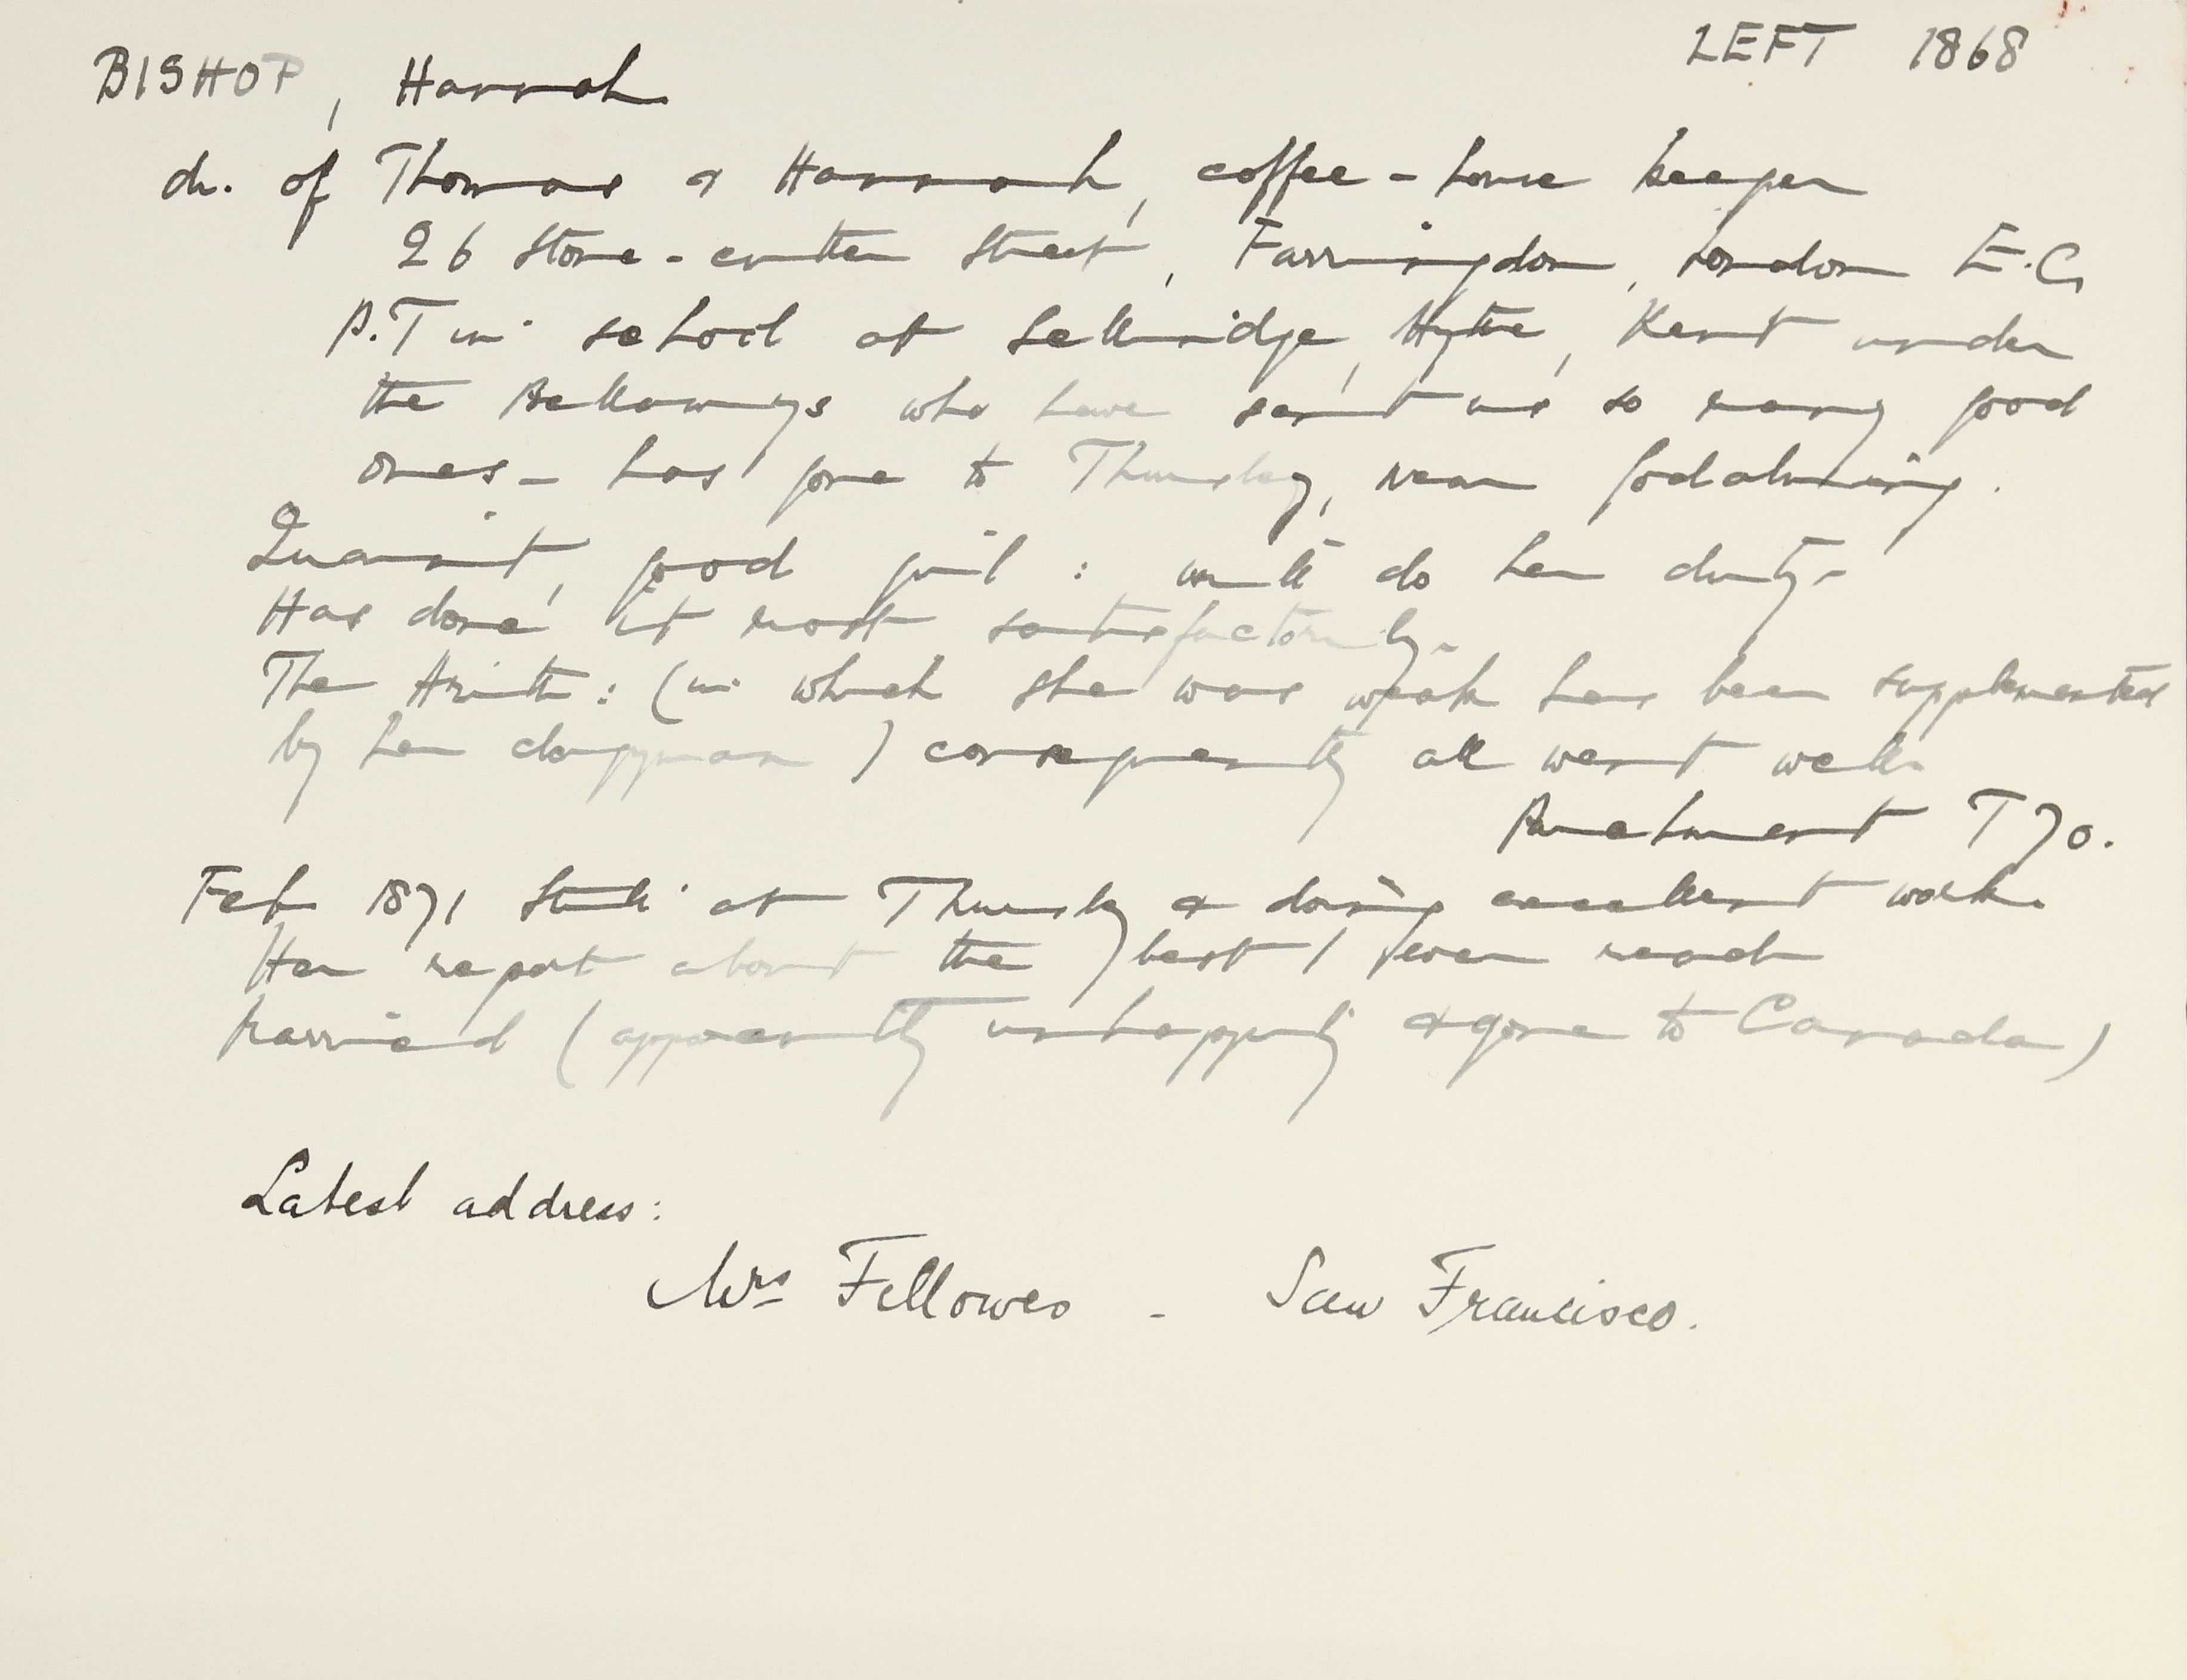 BISHOP, Hannah LEFT 1868
dr. of Thomas & Hannah, coffee-house keeper
26 Stone-cutter Street, Farringdon, London E.C.
P.T in school at Sellindge, Hythe, Kent under
the Kellaways who have sent us so many good
ones - has gone to Thursley, near Godalming.
Quaint, good girl : will do her duty -
Has done it most satisfactorily -
The Arith: (in which she was weak has been supplemented
by her clergyman) consequently all went well.
Parchment 70.
Feb 1871 Still at Thursley & doing excellent work.
Her report about the best I ever read
Married (apparently unhappily & gone to Canada)
Latest address:
Mrs Fellowes - San Francisco.